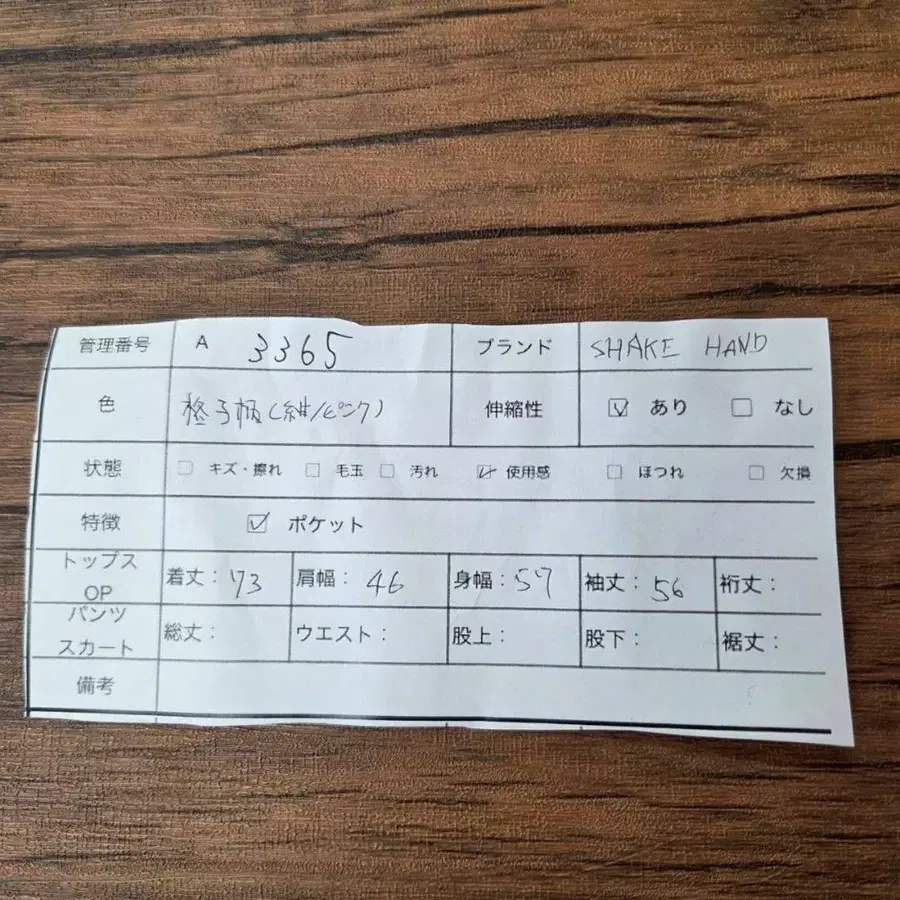 管理番号 A 3365 ブランド SHAKE HAND
色 格子柄(紺/ピンク) 伸縮性 ☑ あり ☐ なし
状態 ☐ キズ・擦れ ☐ 毛玉 ☐ 汚れ ☑ 使用感 ☐ ほつれ ☐ 欠損
特徴 ☑ ポケット
トップス
OP 着丈:73 肩幅:46 身幅:57 袖丈:56 裄丈:
パンツ
スカート 総丈: ウエスト: 股上: 股下: 裾丈:
備考